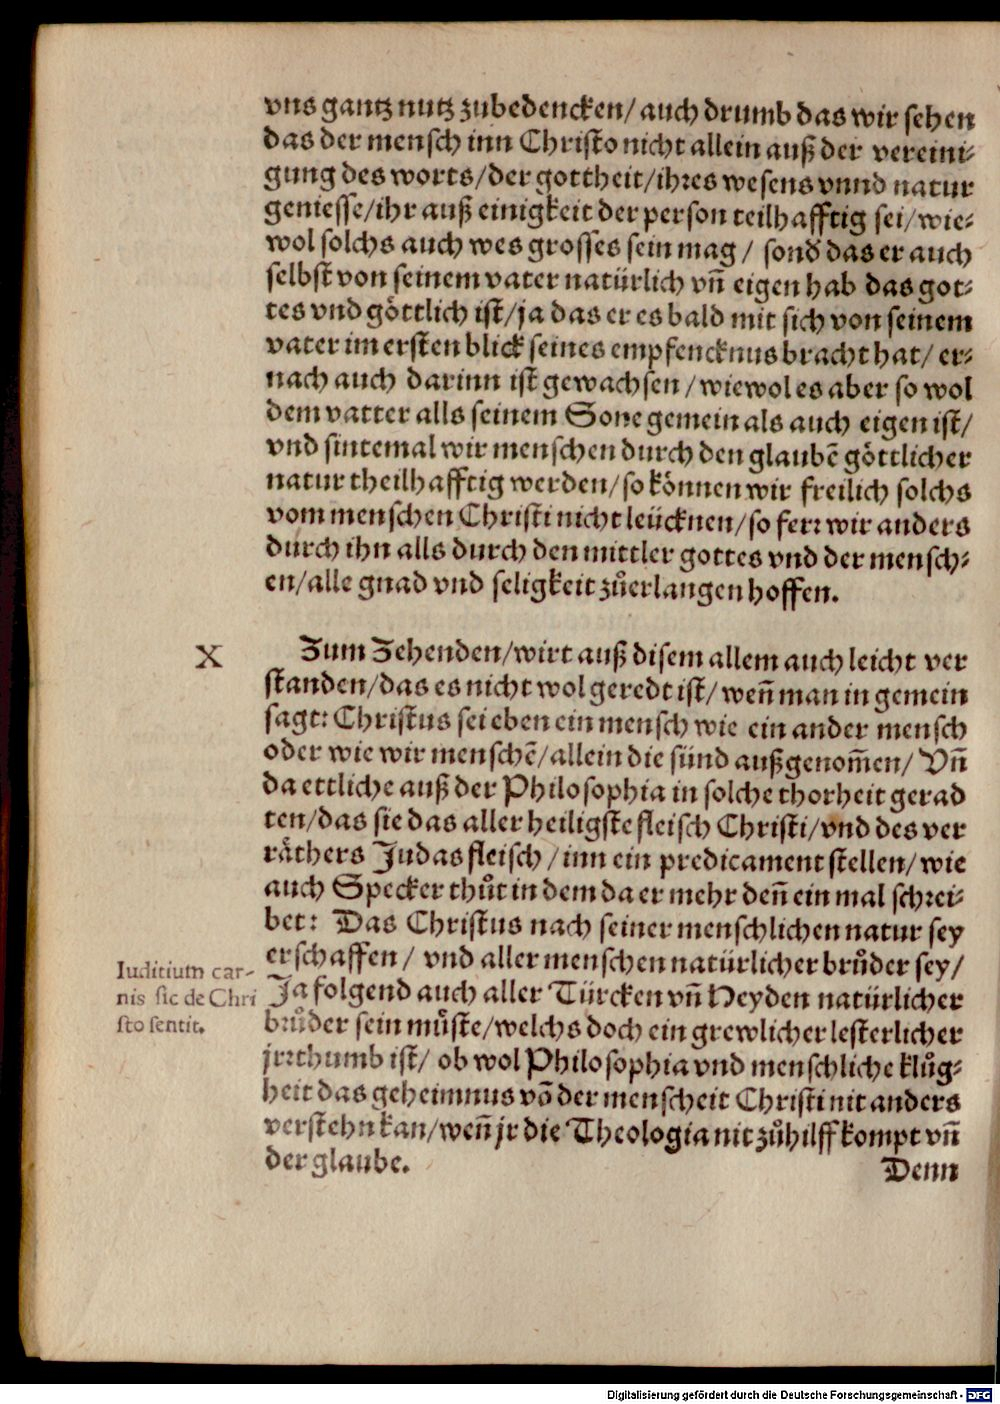 vns gantz nutz zubedencken/ auch drumb das wir sehen
das der mensch inn Christo nicht allein auß der vereini-
gung des worts/der gottheit/ihres wesens vnnd natur
geniesse/ihr auß einigkeit der person teilhafftig sei/wie-
wol solchs auch wes grosses sein mag/ sond̕ das er auch
selbst von seinem vater natürlich vn̄ eigen hab das got-
tes vnd goͤttlich ist/ja das er es bald mit sich von seinem
vater im ersten blick seines empfencknus bracht hat/ er-
nach auch darinn ist gewachsen/wiewol es aber so wol
dem vatter alls seinem Sone gemein als auch eigen ist/
vnd sintemal wir menschen durch den glaubē goͤttlicher
natur theilhafftig werden/so koͤnnen wir freilich solchs
vom menschen Christi nicht leücknen/so ferr wir anders
durch ihn alls durch den mittler gottes vnd der mensch-
en/alle gnad vnd seligkeit zůerlangen hoffen.
X
Zum Zehenden/wirt auß disem allem auch leicht ver
standen/das es nicht wol geredt ist/wen̄ man in gemein
sagt: Christus sei eben ein mensch wie ein ander mensch
oder wie wir menschē/allein die sünd außgenom̄en/ Vn̄
da ettliche auß der Philosophia in solche thorheit gerad
ten/das sie das aller heiligste fleisch Christi/vnd des ver
raͤthers Judas fleisch/inn ein predicament stellen/wie
auch Specker thůt in dem da er mehr den̄ ein mal schrei-
bet: Das Christus nach seiner menschlichen natur sey
erschaffen/ vnd aller menschen natürlicher brůder sey/
Ja folgend auch aller Türcken vn̄ Heyden natürlicher
brůder sein můste/welchs doch ein grewlicher lesterlicher
jrrthumb ist/ ob wol Philosophia vnd menschliche klůg-
heit das geheimnus vō der menscheit Christi nit anders
verstehn kan/wen̄ jr die Theologia nit zůhilff kompt vn̄
der glaube.
Iuditium car-
nis sic de Chri
sto sentit.
Denn
Digitalisierung gefördert durch die Deutsche Forschungsgemeinschaft - DFG